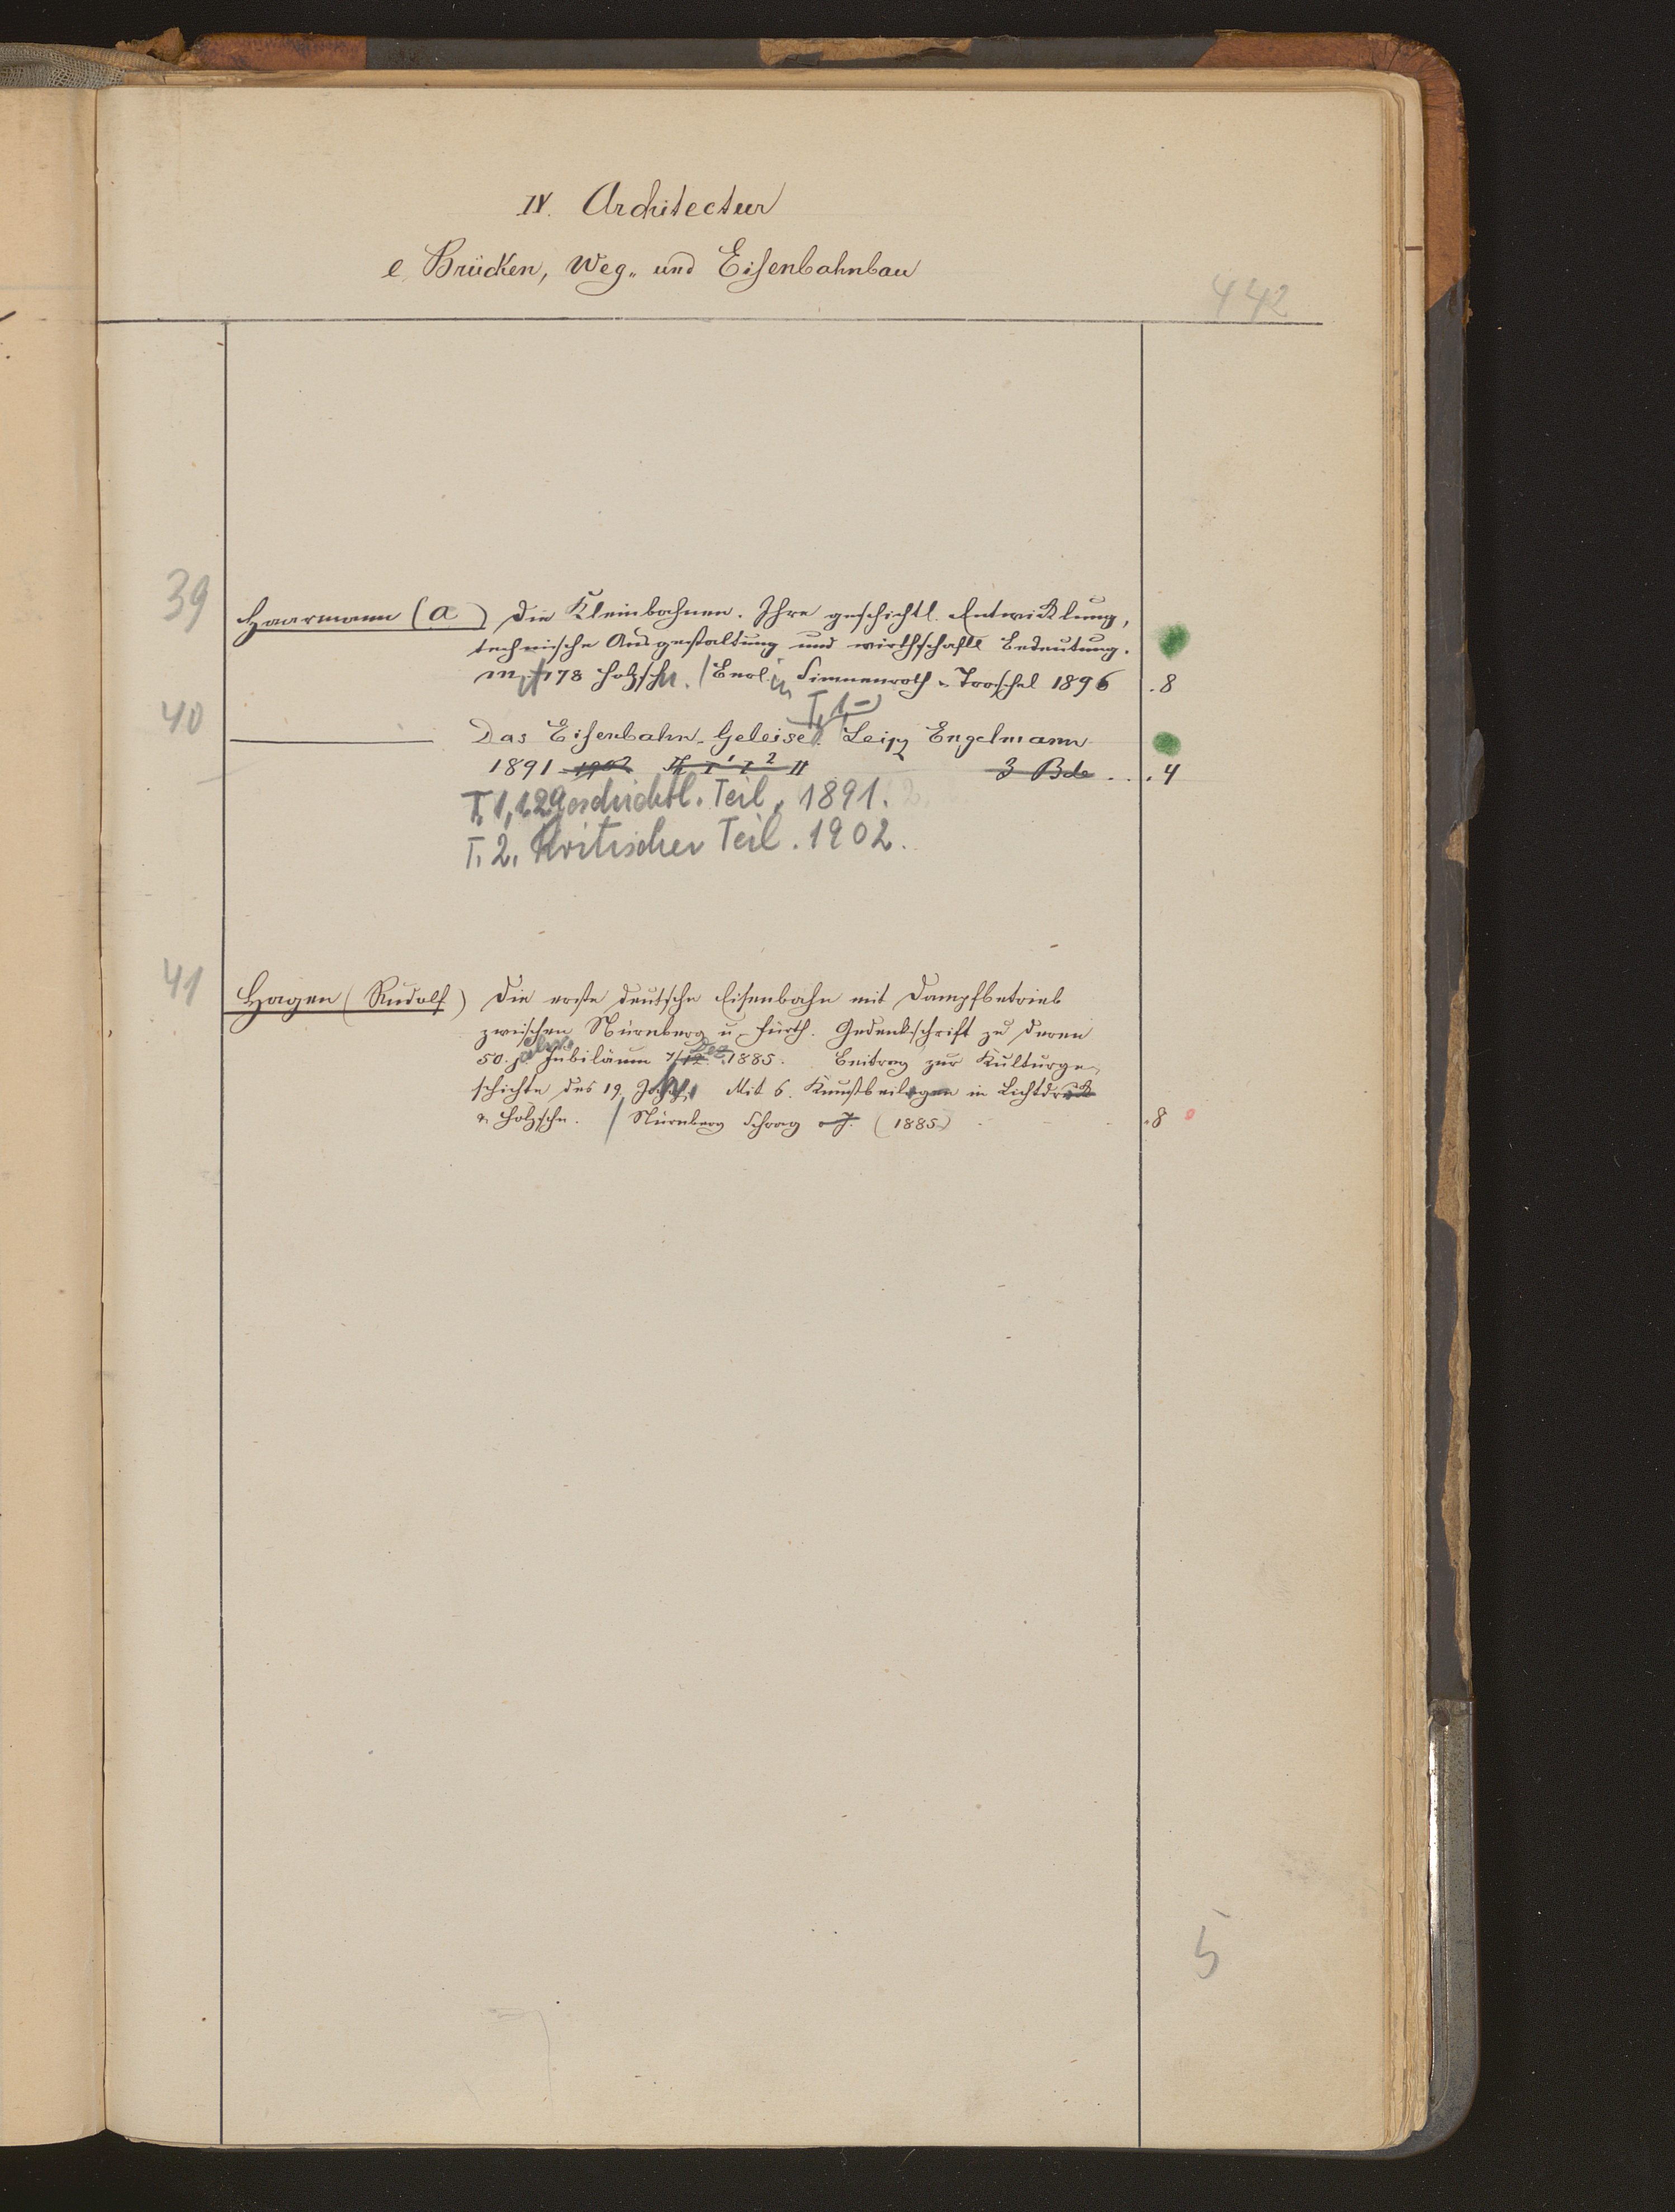 IV. Architectur
e, Brücken, Weg- und Eisenbahnbau
442
39
Haarmann (A) Die Kleinbahnen. Ihre geschichtl. Entwicklung,
technische Ausgestaltung und wirthschaftl Bedeutung.
Mit 178 Holzschn. / Berlin Simmenroth & Troschel 1896 .8
T. 1,-
40
Das Eisenbahn-Geleise. Leipz Engelmann
1891 1902 I¹ I² II 3 Bde .4
T. 1, 1.2 Geschichtl. Teil, 1891.
T. 2. Kritischer Teil. 1902.
41
Hagen (Rudolf) Die erste deutsche Eisenbahn mit Dampfbetrieb
zwischen Nürnberg u. Fürth. Gedenkschrift zu deren
50. jähr. Jubiläum 7/12 Dez. 1885. Beitrag zur Kulturge-
schichte des 19. Jahrh. Mit 6. Kunstbeilagen in Lichtdruck
& Holzschn. / Nürnberg Schrag o J. (1885) .8
5